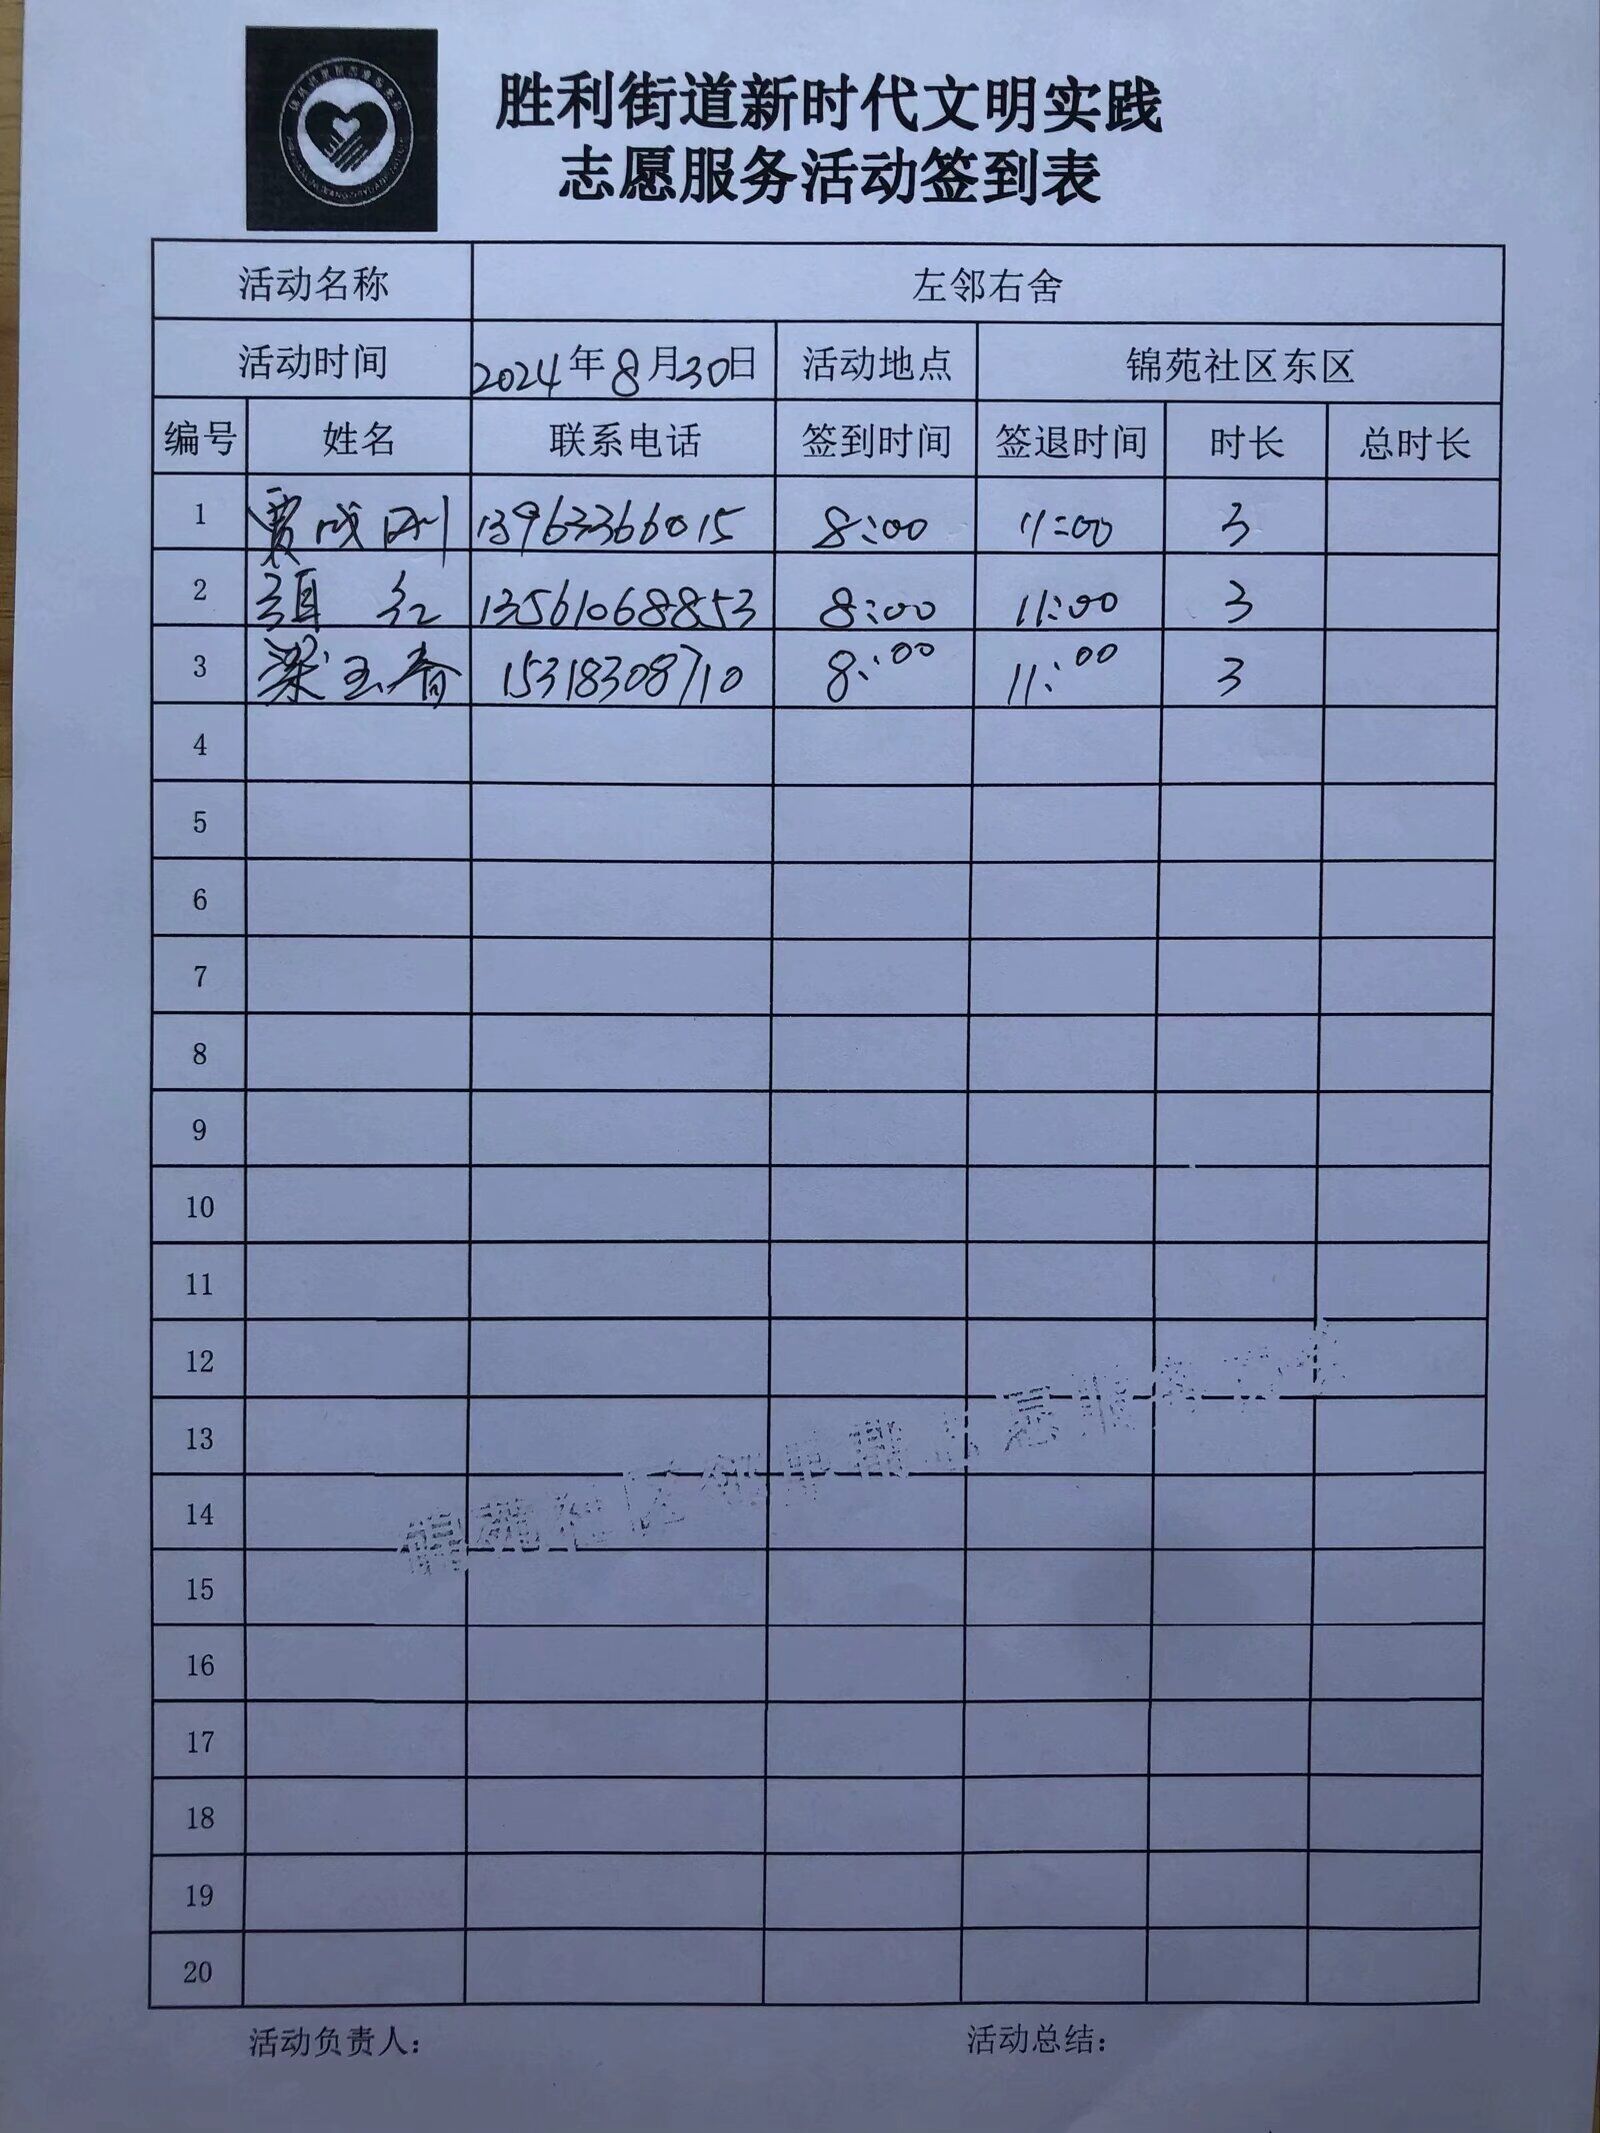 胜利街道新时代文明实践
志愿服务活动签到表
活动名称 左邻右舍
活动时间 2024年8月30日 活动地点 锦苑社区东区
编号 姓名 联系电话 签到时间 签退时间 时长 总时长
1 贾成刚 13963366015 8:00 11:00 3
2 红 13561068853 8:00 11:00 3
3 梁玉春 15318308710 8:00 11:00 3
4
5
6
7
8
9
10
11
12
13
14
15
16
17
18
19
20
锦苑社区
活动负责人: 活动总结: